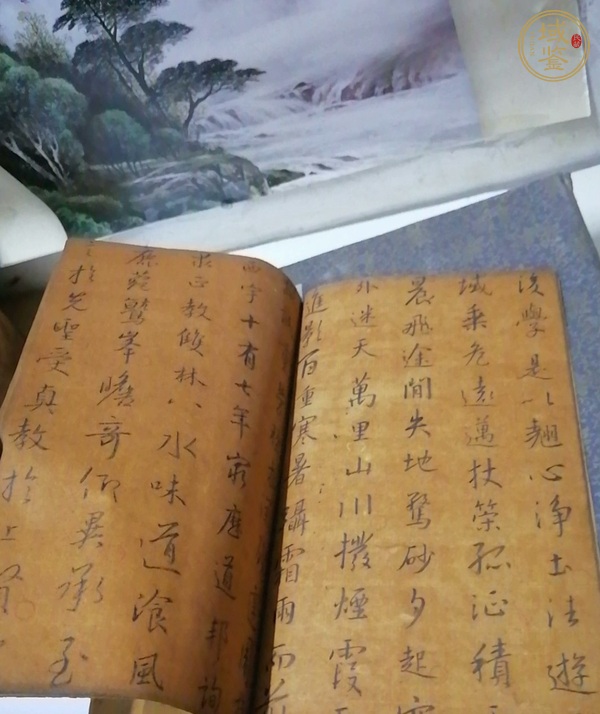 後學是以翹心淨土法遊
域乘危遠邁杖策孤征積
晨飛途間失地驚砂夕起空
外迷天萬里山川撥煙霞
進影百重寒暑躡霜雨而前
西宇十有七年窮歷道邦詢
求正教雙林八水味道飡風
鹿菀鷲峯瞻奇仰異承至
於先聖受真教於上賢
域鑒